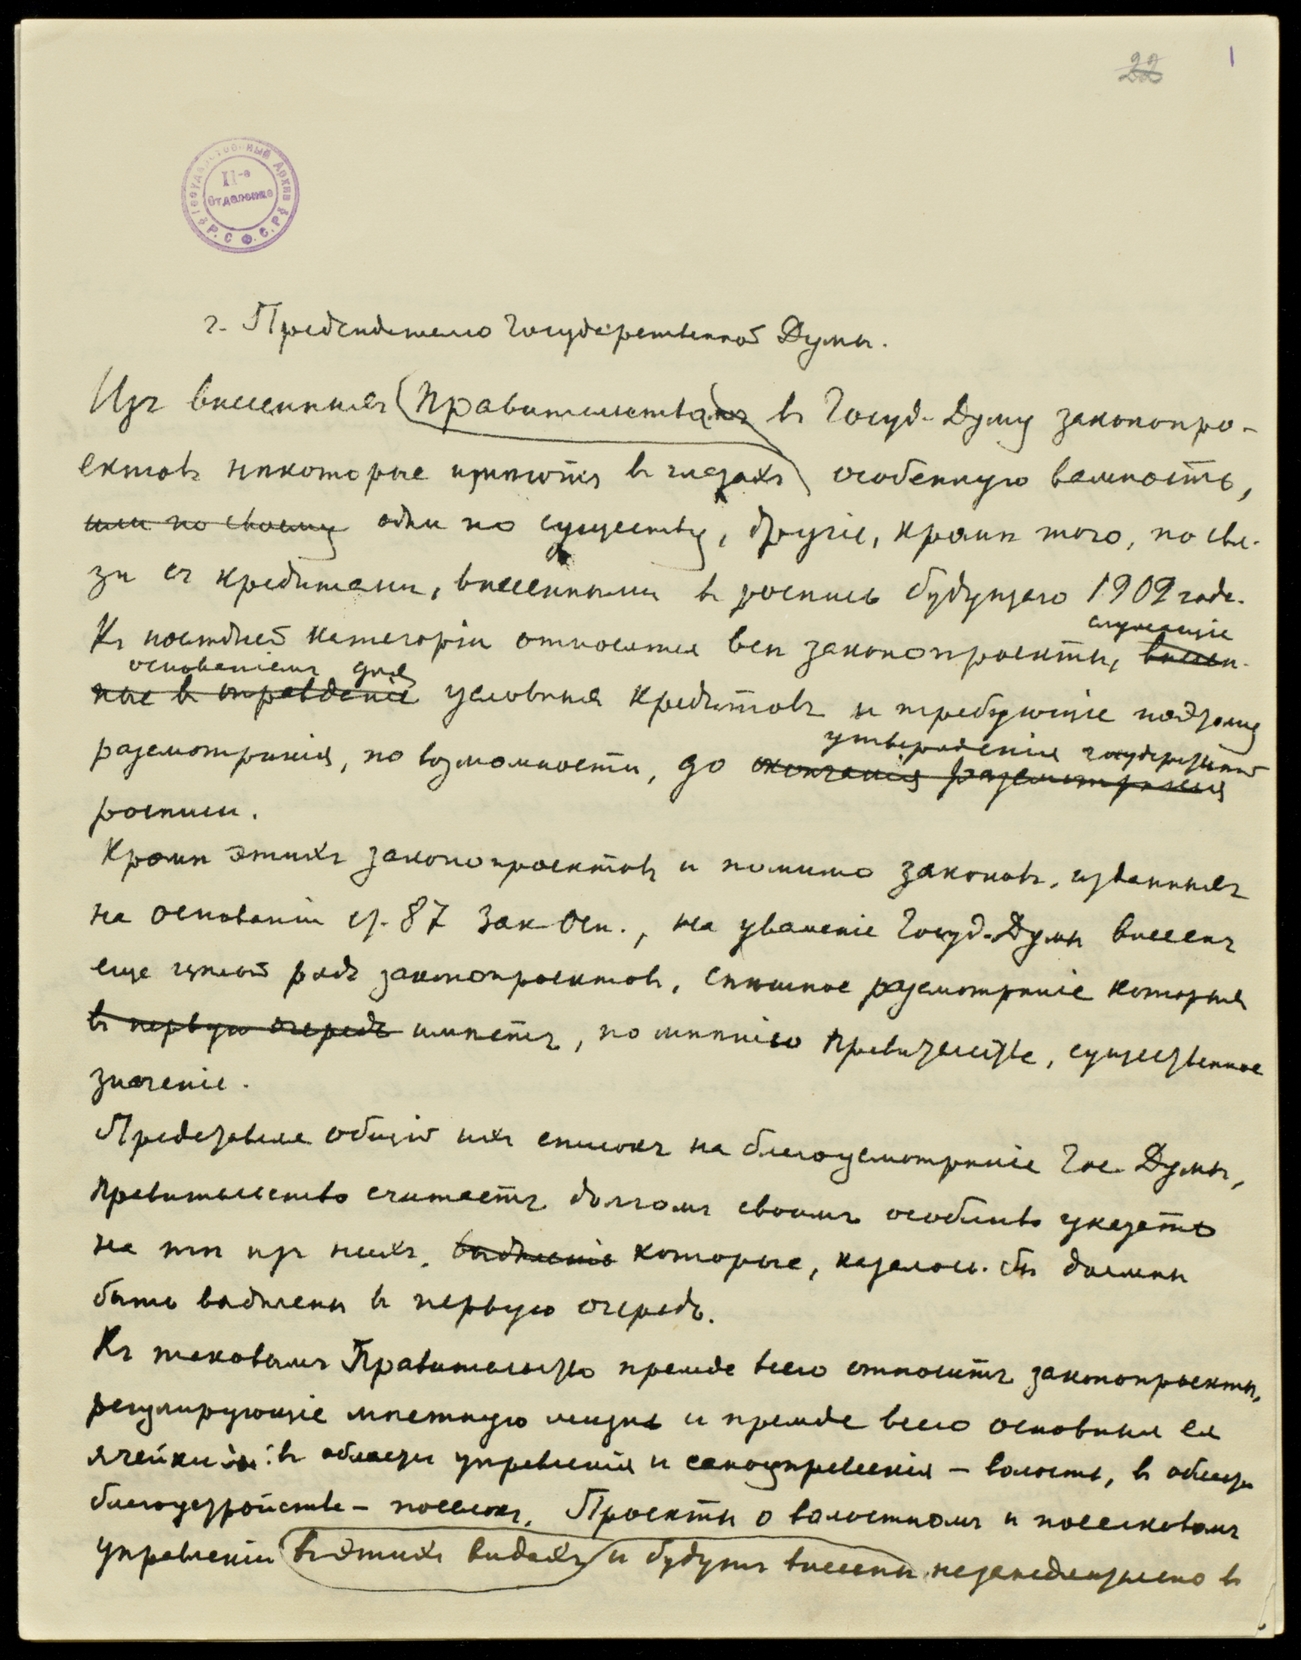 22
1
Государственный Архив Р.С.Ф.С.Р.
II-е
Отделение
г. Предсѣдателю Государственной Думы.
Изъ внесенныхъ Правительствомъ въ Госуд. Думу законопро-
ектовъ нѣкоторые имѣютъ въ глазахъ особенную важность,
или по своему одни по существу, другіе, кромѣ того, по свя-
зи съ кредитами, внесенными въ роспись будущаго 1909 года.
Къ послѣдней категоріи относятся всѣ законопроекты, внесен-
служащіе
основаніемъ для
ные въ оправданіе условныхъ кредитовъ и требующіе потому
разсмотрѣнія, по возможности, до окончанія разсмотрѣнія
утвержденія государственной
росписи.
Кромѣ этихъ законопроектовъ и помимо законовъ, изданныхъ
на основаніи ст. 87 Зак. Осн., на уваженіе Госуд. Думы внесенъ
еще цѣлый рядъ законопроектовъ, спѣшное разсмотрѣніе которыхъ
въ первую очередь имѣетъ, по мнѣнію Правительства, существенное
значеніе.
Представляя общій ихъ списокъ на благоусмотрѣніе Гос. Думы,
Правительство считаетъ долгомъ своимъ особливо указать
на тѣ изъ нихъ, которые, казалось бы должны
быть выдѣлены въ первую очередь.
Къ таковымъ Правительство прежде всего относитъ законопроекты,
регулирующіе мѣстную жизнь и прежде всего основныя ея
ячейки: въ области управленія и самоуправленія – волость, въ области
благоустройства – поселокъ. Проекты о волостномъ и поселковомъ
управленіи въ этихъ видахъ и будутъ внесены незамедлительно въ